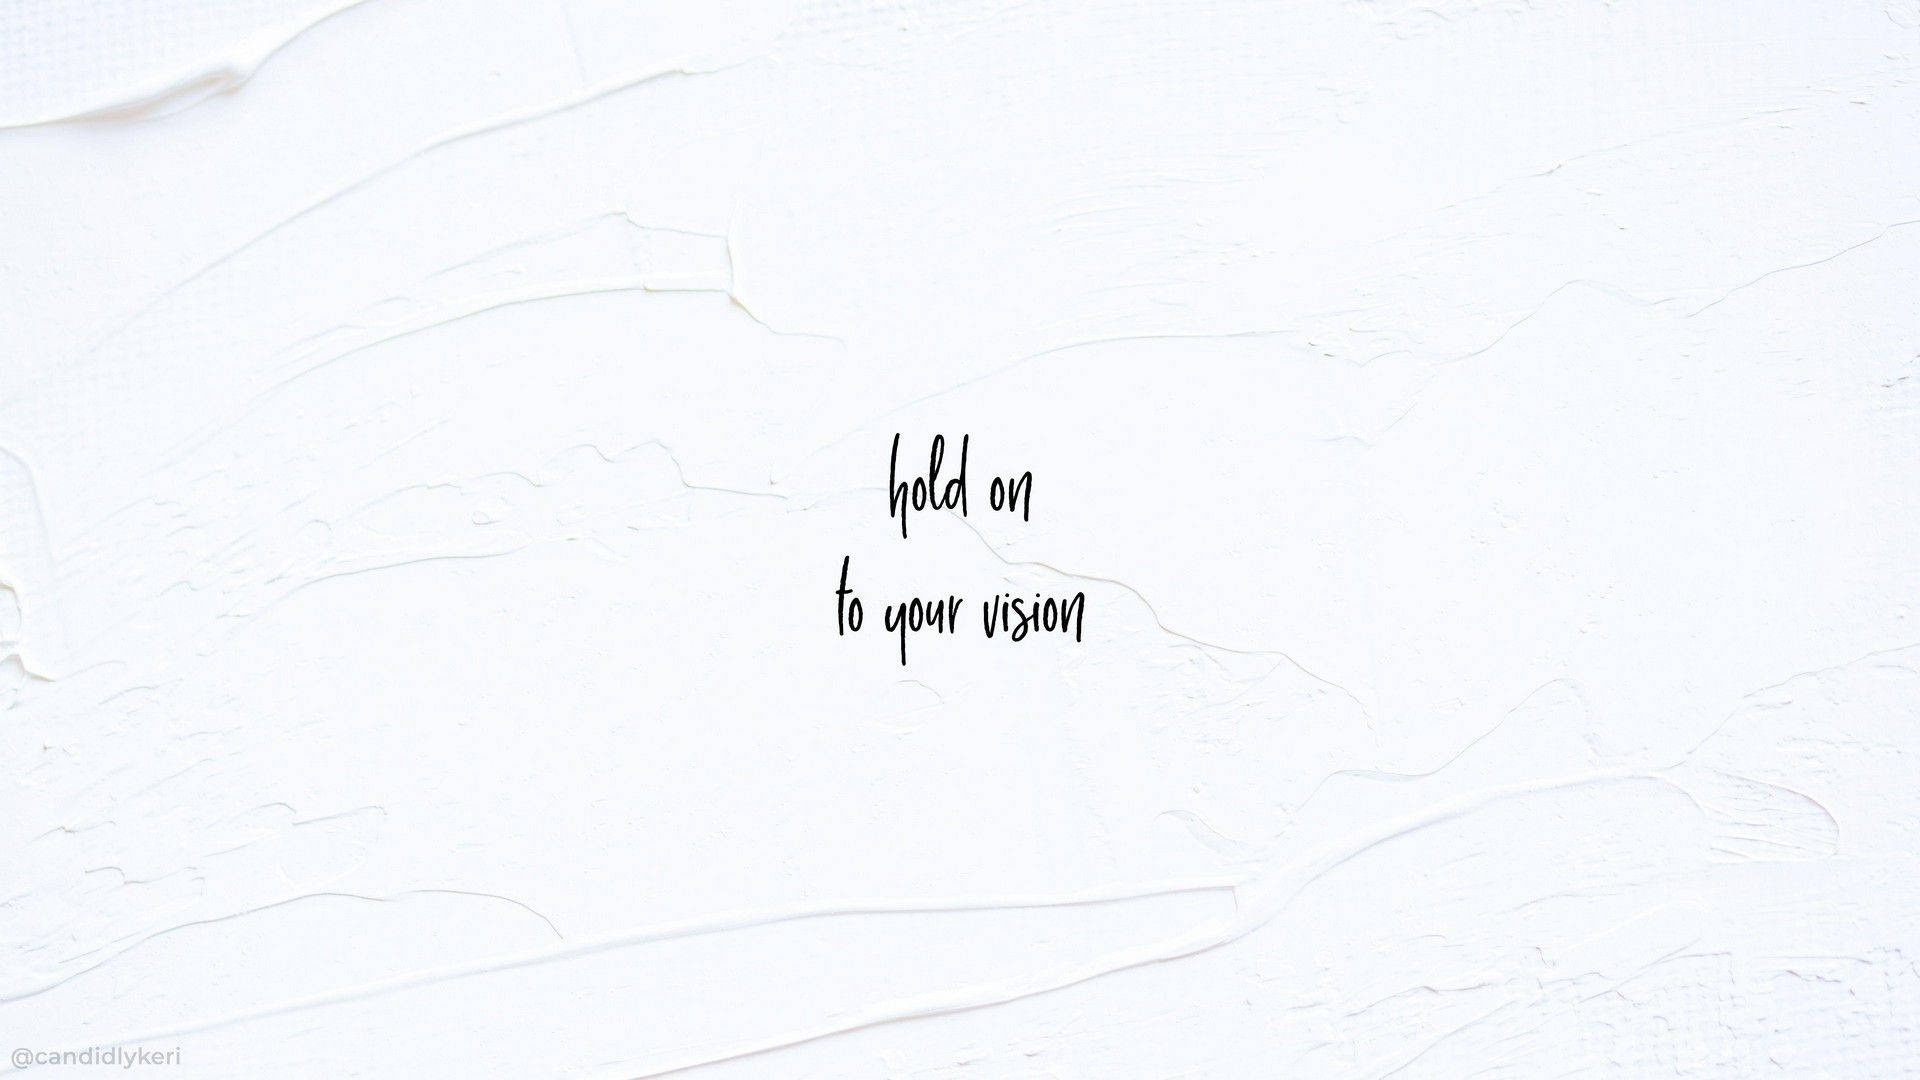 hold on
to your vision
@candidlykeri